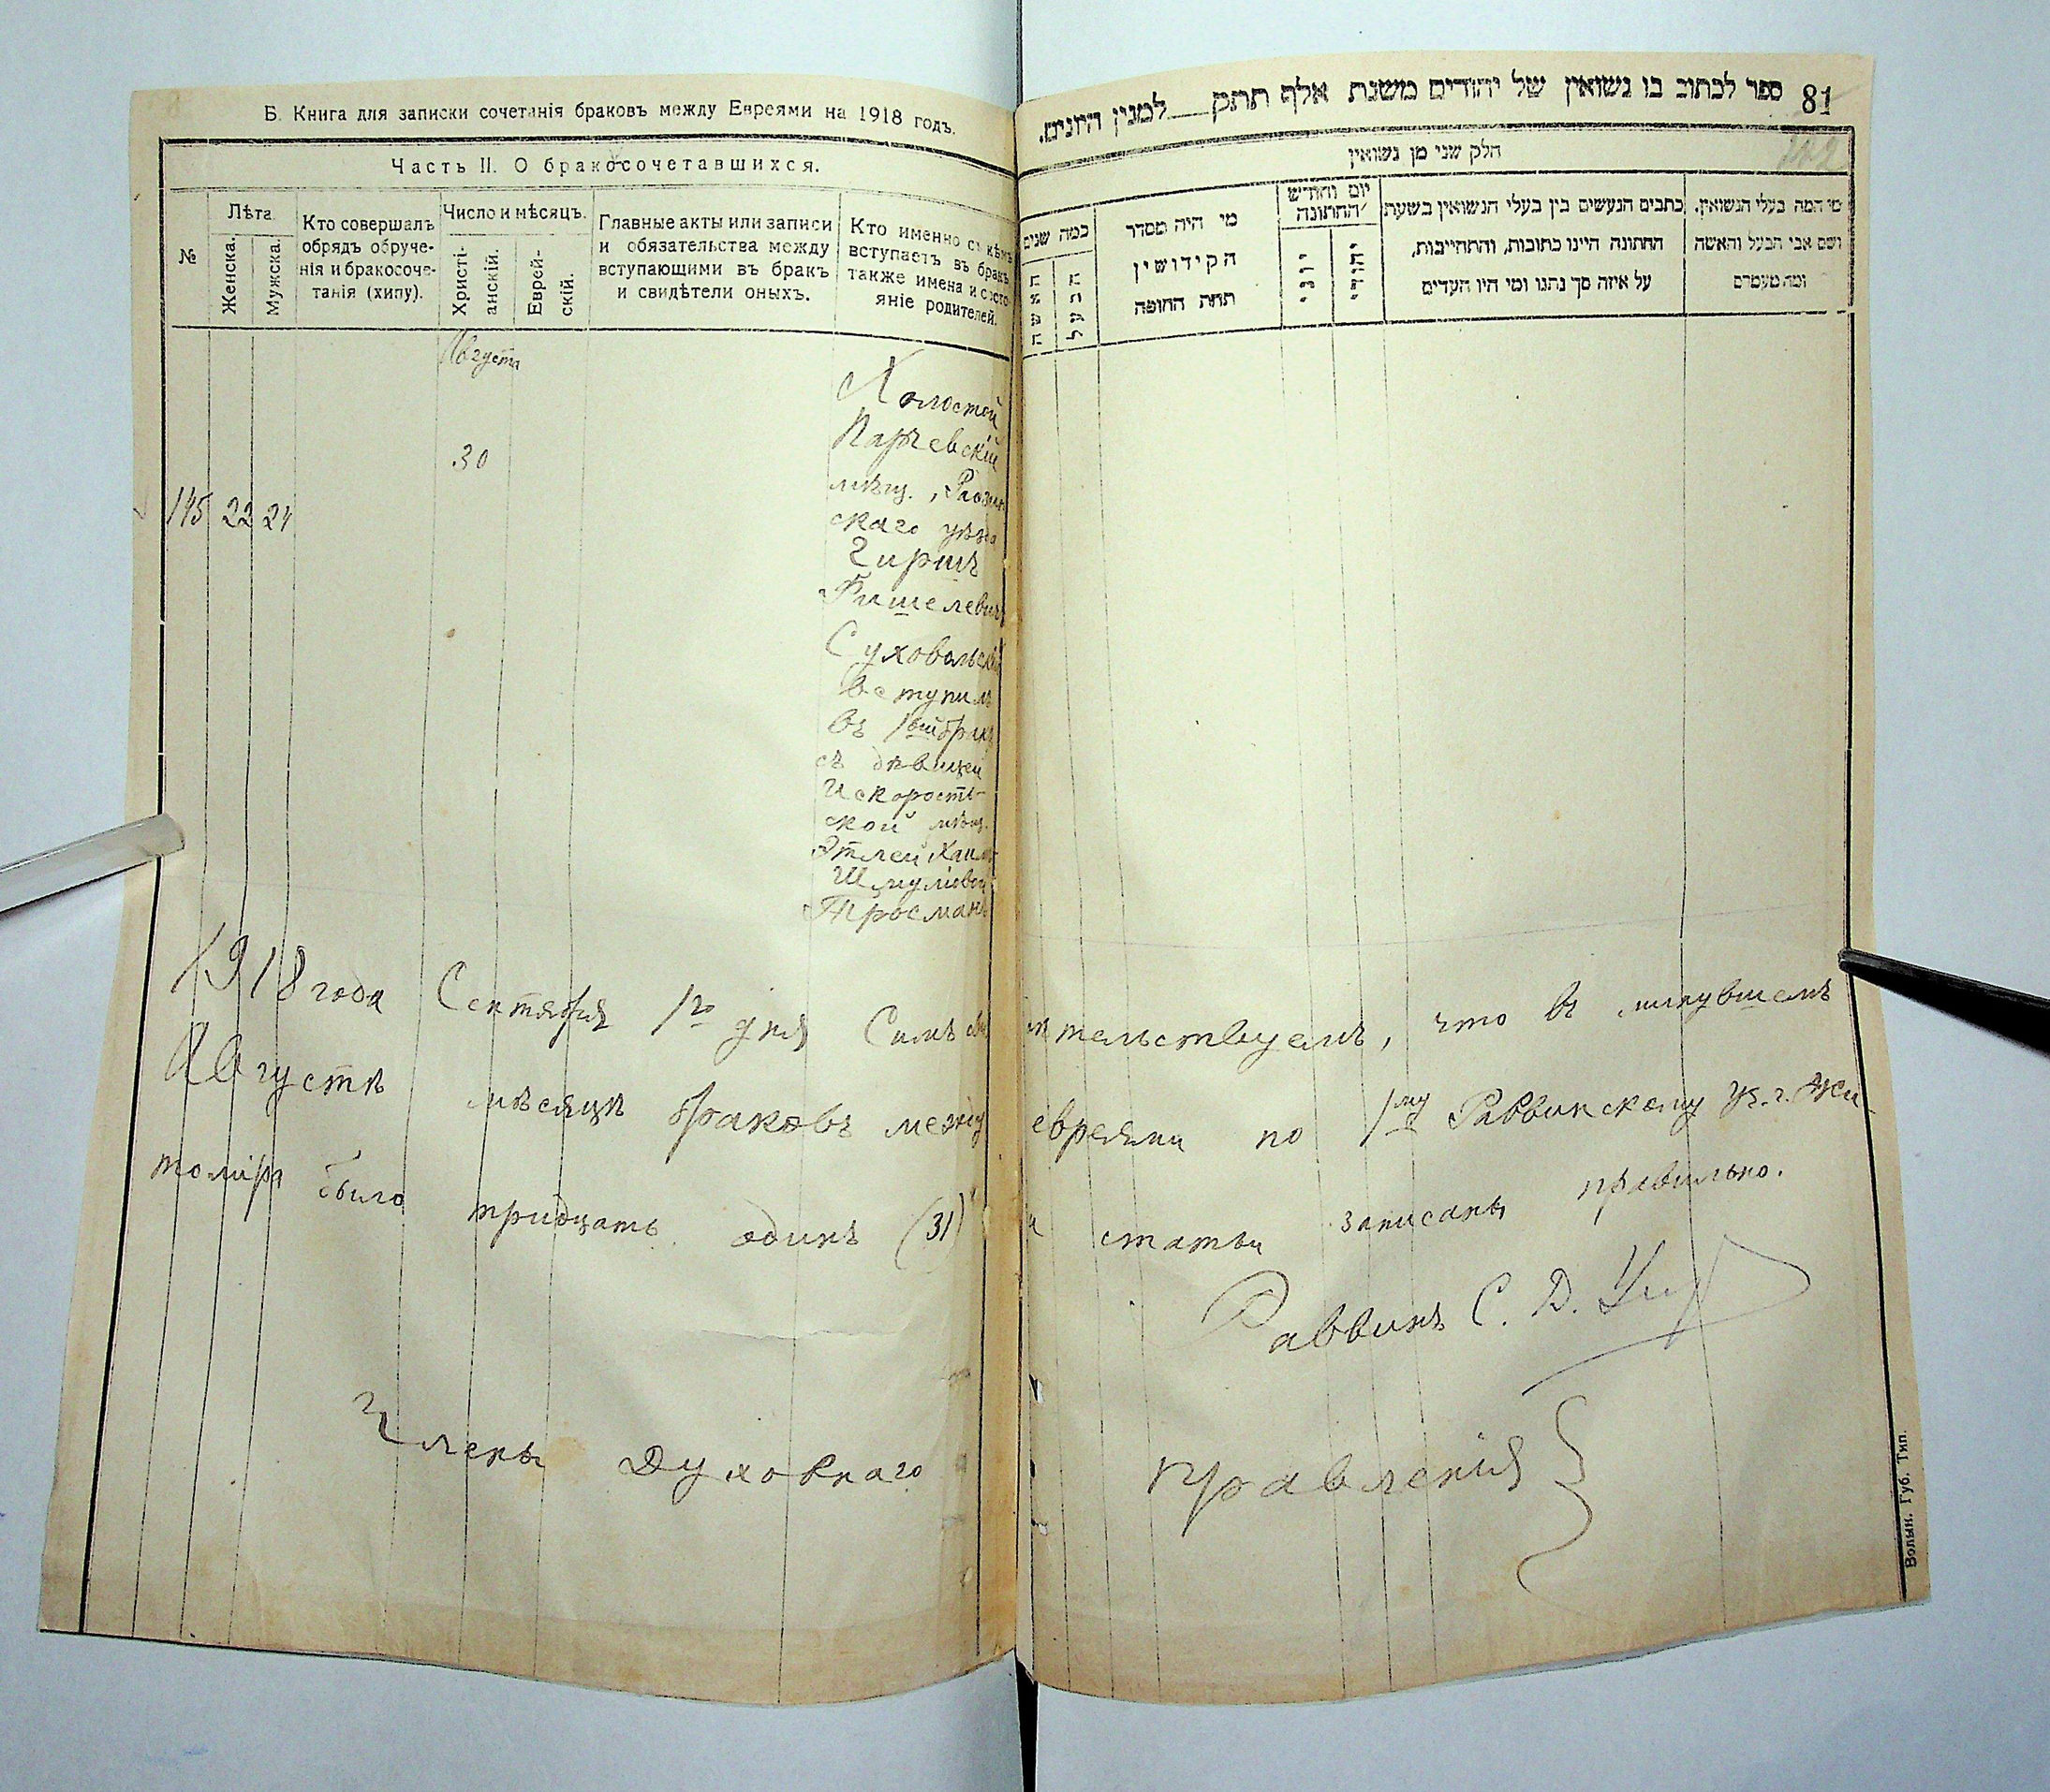 Б. Книга для записки сочетанія браковъ между Евреями на 1918 годъ.
Часть II. О бракосочетавшихся.
№
Лѣта.
Женска.
Мужска.
Кто совершалъ
обрядъ обруче-
нія и бракосоче-
танія (хипу).
Число и мѣсяцъ.
Христі-
анскій.
Еврей-
скій.
Главные акты или записи
и обязательства между
вступающими въ бракъ
и свидѣтели оныхъ.
Кто именно съ кѣмъ
вступаетъ въ бракъ
также имена и состо-
яніе родителей.
Августа
30
145 22 24
Холостой
мѣщ.,
скаго уѣзда
Гиршъ
Фишелевичъ
Суховольскій
вступилъ
въ 1вый бракъ
съ дѣвицей
Искорость-
ской мѣщ.
Этлей Хаимъ
Шмулевой
Тросманъ
ספר לכתוב בו נשואין של יהודים משנת אלף תתק למנין היונים.
81
חלק שני מן נשואין
כמה שנים
האשה
הבעל
מי היה מסדר
הקידושין
תחת החופה
יום וחודש
החתונה
יוני
יהודי
כתבים הנעשים בין בעלי הנשואין בשעת
החתונה היינו כתובות, והתחייבות,
על איזה סך נתנו ומי היו העדים
מי המה בעלי הנשואין.
ושם אבי הבעל והאשה
ומה מעמדם
1918 года Сентября 1го дня Симъ свидѣтельствуемъ, что въ минувшемъ
Августѣ мѣсяцѣ браковъ между евреями по 1му Раввинскому уч. г. Жи-
томіра было тридцать одинъ (31) и статьи записаны правильно.
Раввинъ С. Д.
Члены Духовнаго Правленія
Волын. Губ. Тип.